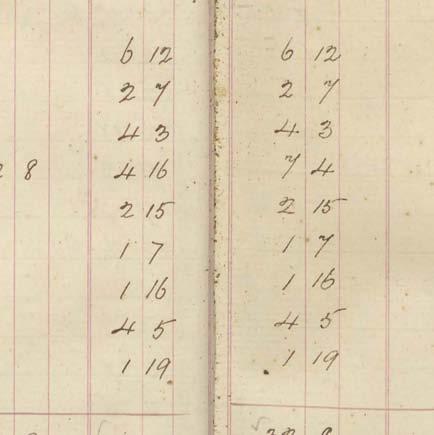 6 12 6 12
2 7 2 7
4 3 4 3
8 4 16 7 4
2 15 2 15
1 7 1 7
1 16 1 16
4 5 4 5
1 19 1 19